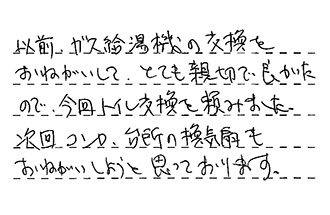 以前、ガス給湯機の交換を
おねがいして、とても親切で、良かた
ので、今回トイレ交換を頼みました。
次回コンロ、台所の換気扇も
おねがいしようと思っております。